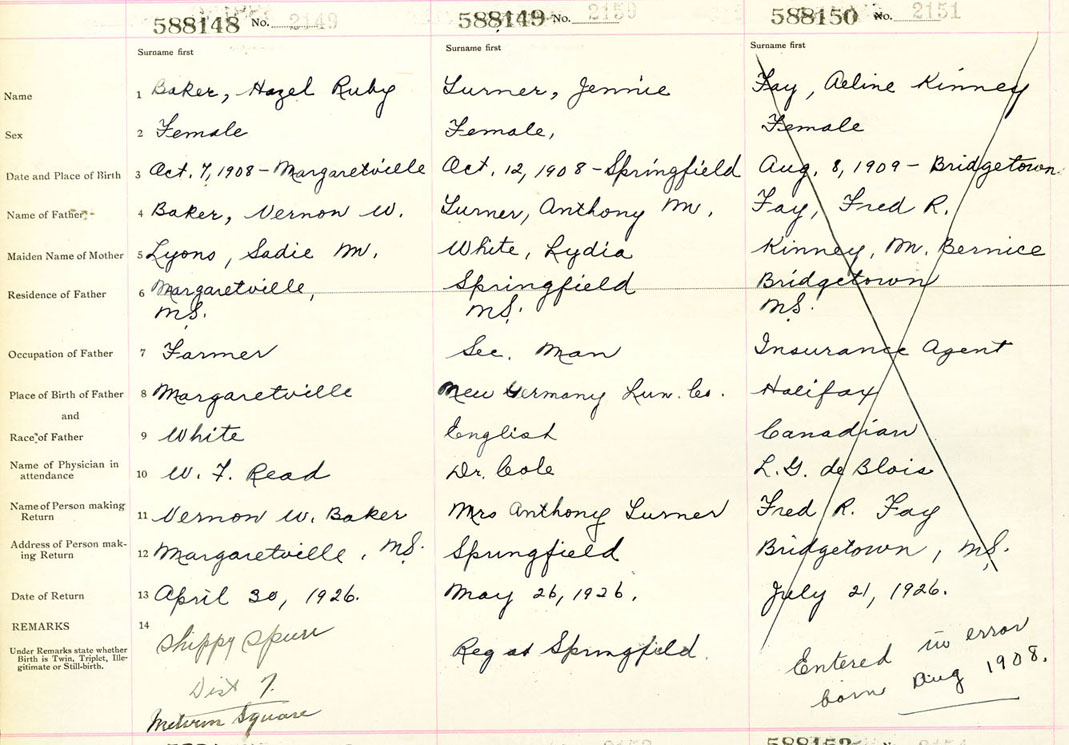 588148 No. 2149 588149 No. 2150 588150 No. 2151
Surname first Surname first Surname first
Name 1 Baker, Hazel Ruby Turner, Jennie Fay, Aeline Kinney
Sex 2 Female Female, Female
Date and Place of Birth 3 Oct. 7, 1908 - Margaretville Oct. 12, 1908 - Springfield Aug. 8, 1909 - Bridgetown
Name of Father 4 Baker, Vernon W. Turner, Anthony M. Fay, Fred R.
Maiden Name of Mother 5 Lyons, Sadie M. White, Lydia Kinney, M. Bernice
Residence of Father 6 Margaretville, Springfield Bridgetown
N.S. N.S. N.S.
Occupation of Father 7 Farmer Sec. Man Insurance Agent
Place of Birth of Father 8 Margaretville New Germany Lun. Co. Halifax
and
Race of Father 9 White English Canadian
Name of Physician in
attendance 10 W. F. Read Dr. Cole L. G. de Blois
Name of Person making
Return 11 Vernon W. Baker Mrs Anthony Turner Fred R. Fay
Address of Person mak-
ing Return 12 Margaretville, N.S. Springfield Bridgetown, N.S.
Date of Return 13 April 30, 1926. May 26, 1926. July 21, 1926.
REMARKS 14
Under Remarks state whether
Birth is Twin, Triplet, Ille-
gitimate or Still-birth.
Reg at Springfield.
Entered in error
born Aug 1908.
Dist 7.
Melvern Square